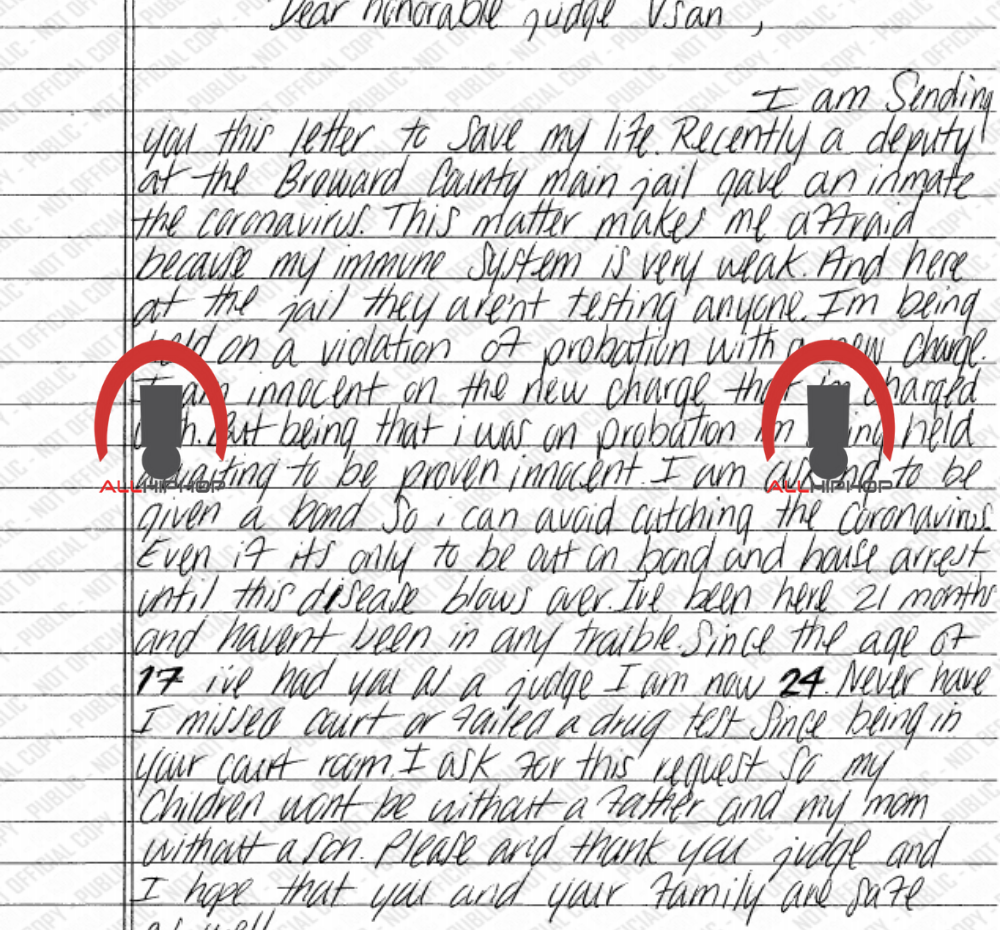 Dear honorable judge Usan,
I am Sending
you this letter to save my life. Recently a deputy
at the Broward County main jail gave an inmate
the coronavirus. This matter makes me affraid
because my immune system is very weak. And here
at the jail they are'nt testing anyone. Im being
held on a violation of probation with a new charge.
I am innocent on the new charge that im charged
with. But being that i was on probation im being held
awaiting to be proven innocent. I am to be
given a bond so i can avoid catching the coronavirus.
Even if its only to be out on bond and house arrest
until this disease blows over. Ive been here 21 months
and havent been in any trouble. Since the age of
17 i've had you as a judge I am now 24. Never have
I missed court or failed a drug test since being in
your court room. I ask for this request so my
Children wont be without a father and my mom
without a son. Please and thank you judge and
I hope that you and your family are safe
as well
ALLHIPHOP
ALLHIPHOP
PUBLIC - NOT OFFICIAL COPY - PUBLIC - NOT OFFICIAL COPY